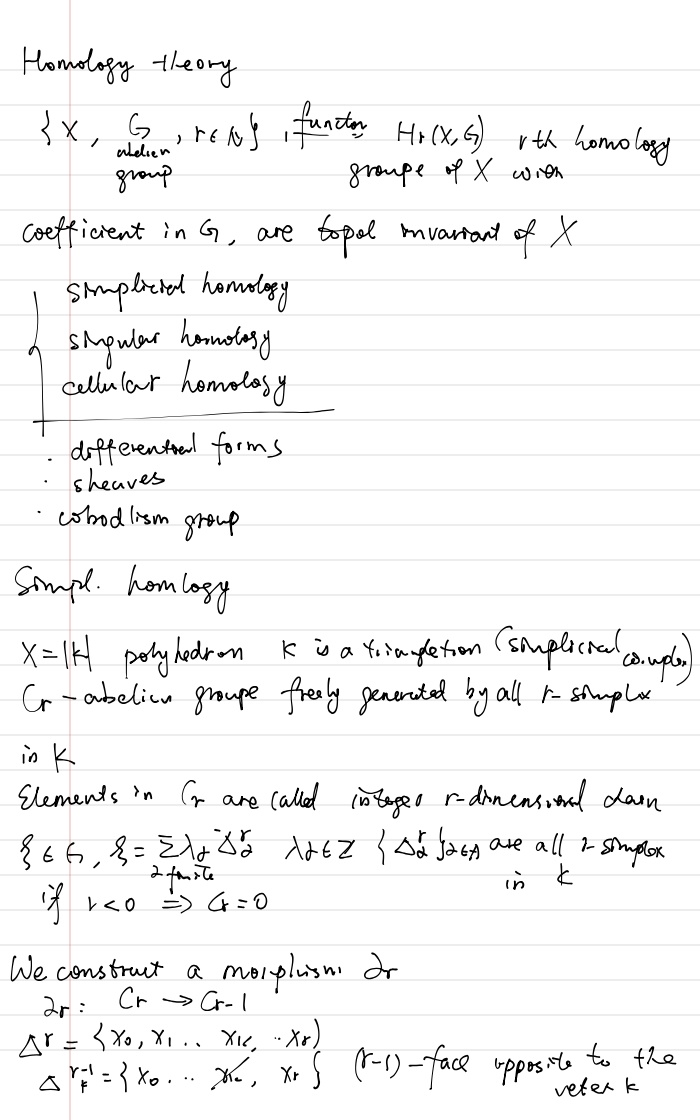 Homology theory
{X, G, r∈N}, functor Hr(X,G) rth homology
abelien
group groupe of X with
coefficient in G, are topol invariant of X
simplicial homology
singular homology
cellular homology
· differential forms
· sheaves
· cobodlism group
Simpl. homlogy
X=|K| polyhedron K is a triangletion (simplicial complex)
Cr - abelien groupe freely generated by all r-simplex
in K
Elements in Cr are called integer r-dimensional chain
ξ ∈ G, ξ = Σ λα Δα^r λα∈Z {Δα^r}α∈A are all r simplex
α finite in K
if r<0 ⇒ Cr=0
We construct a morphism ∂r
∂r: Cr → Cr-1
Δ^r = {x0, x1 .. xk, .. xr}
Δk^r-1 = {x0 ... x̸k, xr} (r-1)-face opposite to the
vetex k